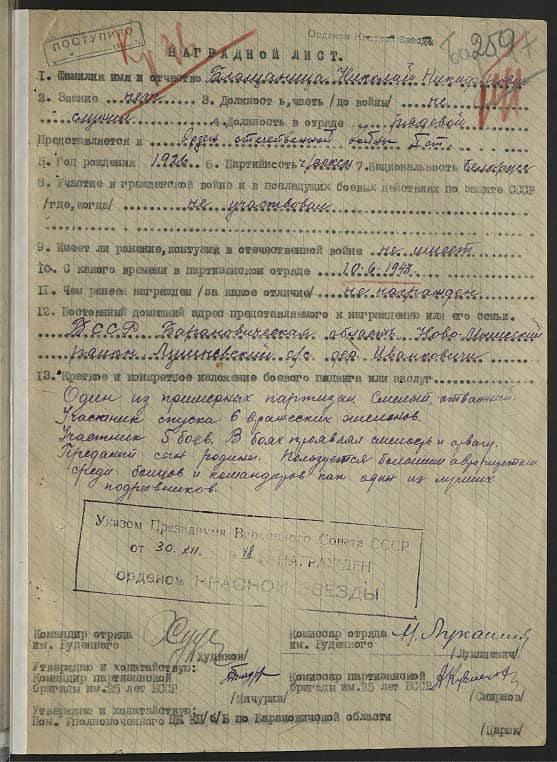 Орденом Красной Звезды
ПОСТУПИЛО
259
НАГРАДНОЙ ЛИСТ.
1. Фамилия имя и отчество Николай
2. Звание нет 3. Должность, часть /до войны/ не
служил 4. Должность в отряде рядовой
Представляется к Орден отечественной войны I ст.
5. Год рождения 6. Партийность 7. Национальность Белорус
8. Участие в гражданской войне и в последущих боевых действиях по защите СССР
/где, когда/ не участвовал
9. Имеет ли ранение, контузию в отечественной войне не имеет
10. С какого времени в партизанском отряде 10.6.1943
11. Чем ранее награжден /за какое отличие/ не награжден
12. Постоянный домашний адрес представляемого к награждению или его семьи.
БССР Барановическая область Ново-Мышский
район с/с дер. Иванковичи
13. Краткое и конкретное изложение боевого подвига или заслуг
Один из примерных партизан. Смелый, отважный.
Участник спуска 6 вражеских эшелонов.
Участник 5 боев. В боях проявлял смелость и отвагу.
Преданый сын родины. Пользуется большим авторитетом
среди бойцов и командиров как один из лучших
подрывников.
Указом Президиума Верховного Совета СССР
от 30.XII. 48 НАГРАЖДЕН
орденом КРАСНОЙ ЗВЕЗДЫ
Командир отряда Комиссар отряда
им. Руденного им. Руденного
/Худяков/ /Лукашевич/
Утверждаю и ходатайствую:
Командир партизанской Комиссар партизанской
бригады им.25 лет БССР бригады им.25 лет БССР
/Мичурин/ /Смирнов/
Утверждаю и ходатайствую:
Пом. Уполномоченного ЦК КП/б/Б по Барановичской области
/Царюк/